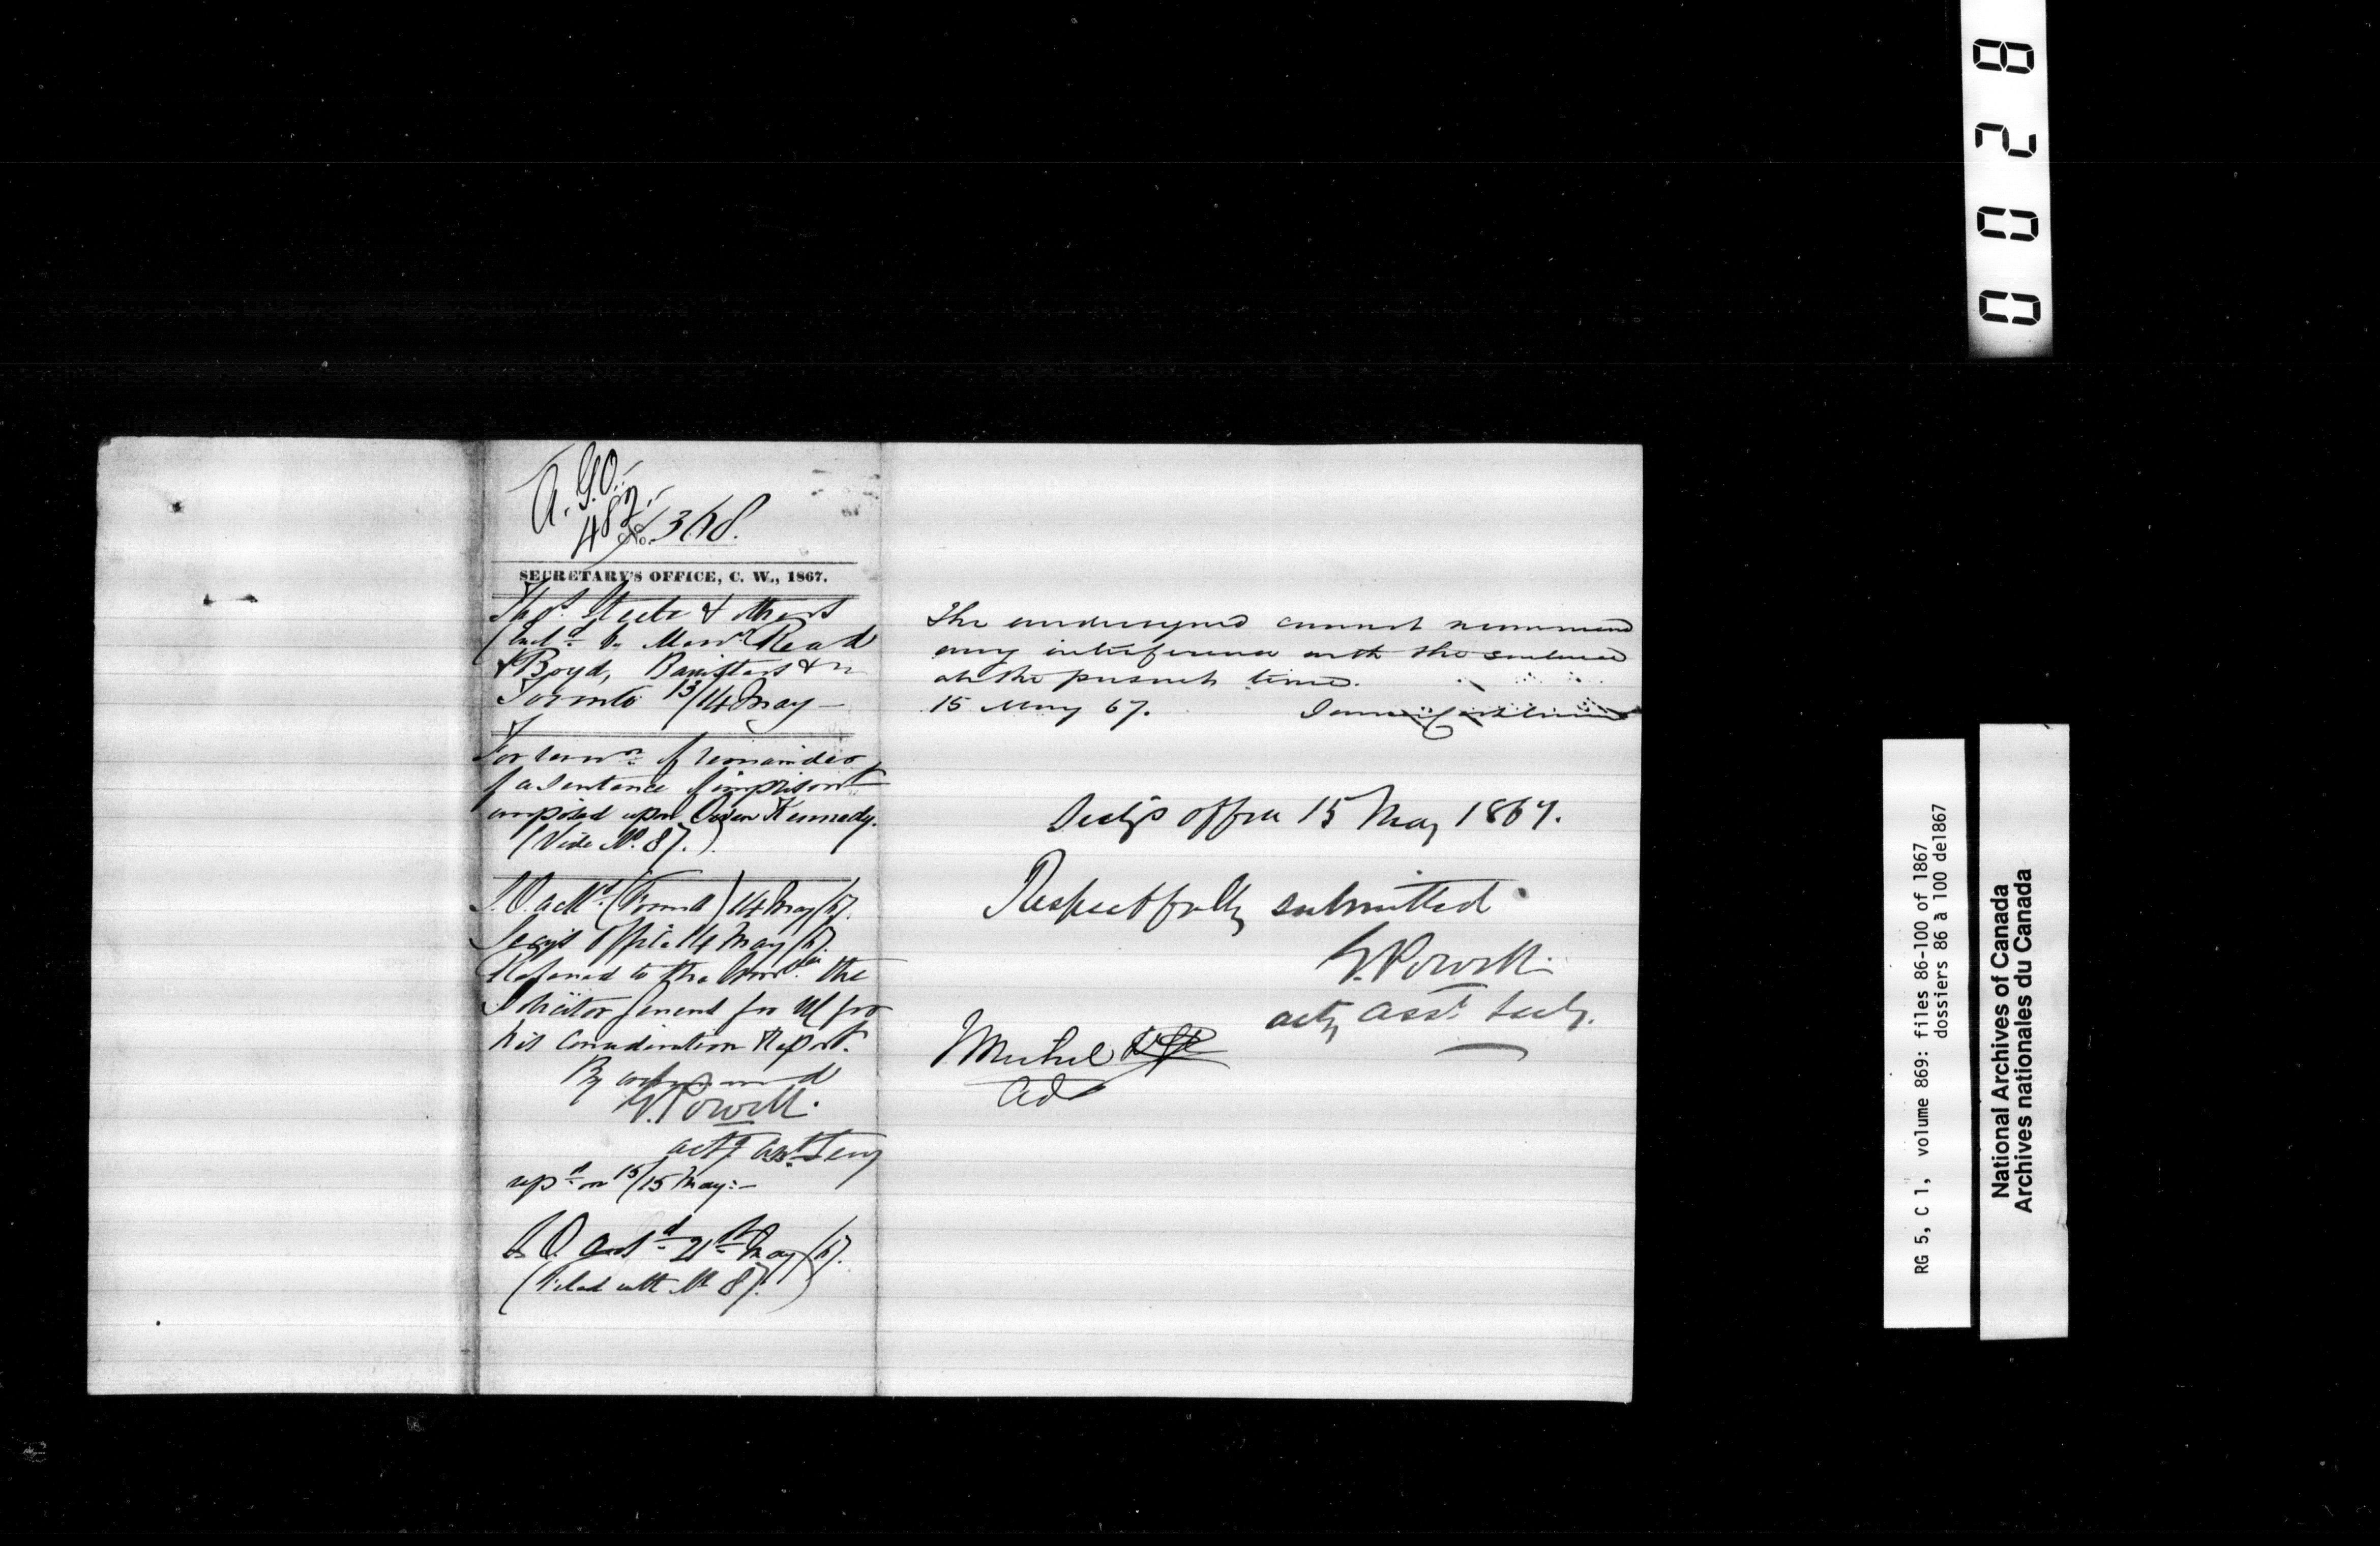 A.G.O.
482.
No. 368.
SECRETARY'S OFFICE, C. W., 1867.
Thos. Steele & others
(Encl.d by Messrs Read
& Boyd, Barristers &c
Toronto 13/14 May —
For remn. of remainder
of a sentence of imprisont
imposed upon Owen Kennedy.
(Vide No. 87.)
L.O. ackd (Form) 14 May /67.
Secy's Office 14 May /67.
Referred to the Honble. the
Solicitor General for U.C. for
his Consideration & Report.
By command
G. Powell.
actg asst Secy
repd on 15/15 May:—
L.O. 21st May /67.
(Filed with No 87.)
The undersigned cannot recommend
any interference with the sentence
at the present time.
15 May 67. James Cockburn
Secy's office 15 May 1867.
Respectfully submitted
G. Powell.
actg asst Secy.
J. Michel
Ad
0028
RG 5, C 1, volume 869: files 86-100 of 1867
dossiers 86 à 100 de1867
National Archives of Canada
Archives nationales du Canada